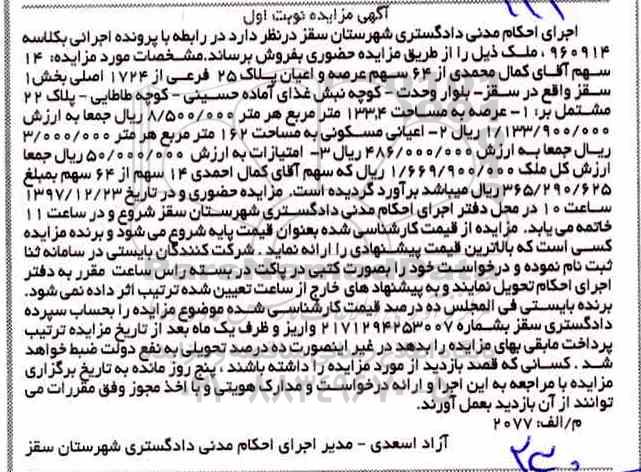 آگهی مزایده نوبت اول
اجرای احکام مدنی دادگستری شهرستان سقز درنظر دارد در رابطه با پرونده اجرائی بکلاسه
۹۶۰۹۱۴ ، ملک ذیل را از طریق مزایده حضوری بفروش برساند.مشخصات مورد مزایده: ۱۴
سهم آقای کمال محمدی از ۶۴ سهم عرصه و اعیان پلاک ۲۵ فرعی از ۱۷۲۴ اصلی بخش۱
سقز واقع در سقز- بلوار وحدت - کوچه نبش غذای آماده حسینی - کوچه طاطایی - پلاک ۲۲
مشتمل بر: ۱- عرصه به مساحت ۱۳۳.۴ متر مربع هر متر ۸/۵۰۰/۰۰۰ ریال جمعا به ارزش
۱/۱۳۳/۹۰۰/۰۰۰ ریال ۲- اعیانی مسکونی به مساحت ۱۶۲ متر مربع هر متر ۳/۰۰۰/۰۰۰
ریال جمعا به ارزش ۴۸۶/۰۰۰/۰۰۰ ریال ۳- امتیازات به ارزش ۵۰/۰۰۰/۰۰۰ ریال جمعا
ارزش کل ملک ۱/۶۶۹/۹۰۰/۰۰۰ ریال که سهم آقای کمال احمدی ۱۴ سهم از ۶۴ سهم بمبلغ
۳۶۵/۲۹۰/۶۲۵ ریال میباشد برآورد گردیده است. مزایده حضوری و در تاریخ ۱۳۹۷/۱۲/۲۳
ساعت ۱۰ در محل دفتر اجرای احکام مدنی دادگستری شهرستان سقز شروع و در ساعت ۱۱
خاتمه می یابد. مزایده از قیمت کارشناسی شده بعنوان قیمت پایه شروع می شود و برنده مزایده
کسی است که بالاترین قیمت پیشنهادی را ارائه نماید . شرکت کنندگان بایستی در سامانه ثنا
ثبت نام نموده و درخواست خود را بصورت کتبی در پاکت در بسته راس ساعت مقرر به دفتر
اجرای احکام تحویل نمایند و به پیشنهاد های خارج از ساعت تعیین شده ترتیب اثر داده نمی شود.
برنده بایستی فی المجلس ده درصد قیمت کارشناسی شده موضوع مزایده را بحساب سپرده
دادگستری سقز بشماره ۲۱۷۱۲۹۴۲۵۳۰۰۷ واریز و ظرف یک ماه بعد از تاریخ مزایده ترتیب
پرداخت مابقی بهای مزایده را بدهد در غیر اینصورت ده درصد تحویلی به نفع دولت ضبط خواهد
شد . کسانی که قصد بازدید از مورد مزایده را داشته باشند ، پنج روز مانده به تاریخ برگزاری
مزایده با مراجعه به این اجرا و ارائه درخواست و مدارک هویتی و با اخذ مجوز وفق مقررات می
توانند از آن بازدید بعمل آورند.
م/الف: ۲۰۷۷
آزاد اسعدی - مدیر اجرای احکام مدنی دادگستری شهرستان سقز